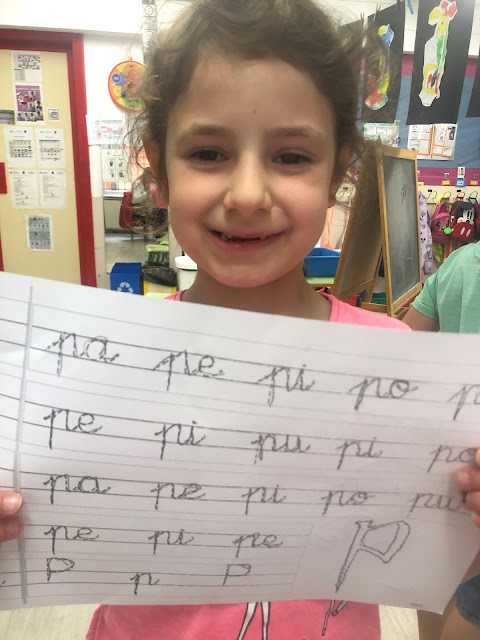 pa pe pi po p
pe pi pu pi po
pa pe pi po pu
pe pi pe
P p P
P